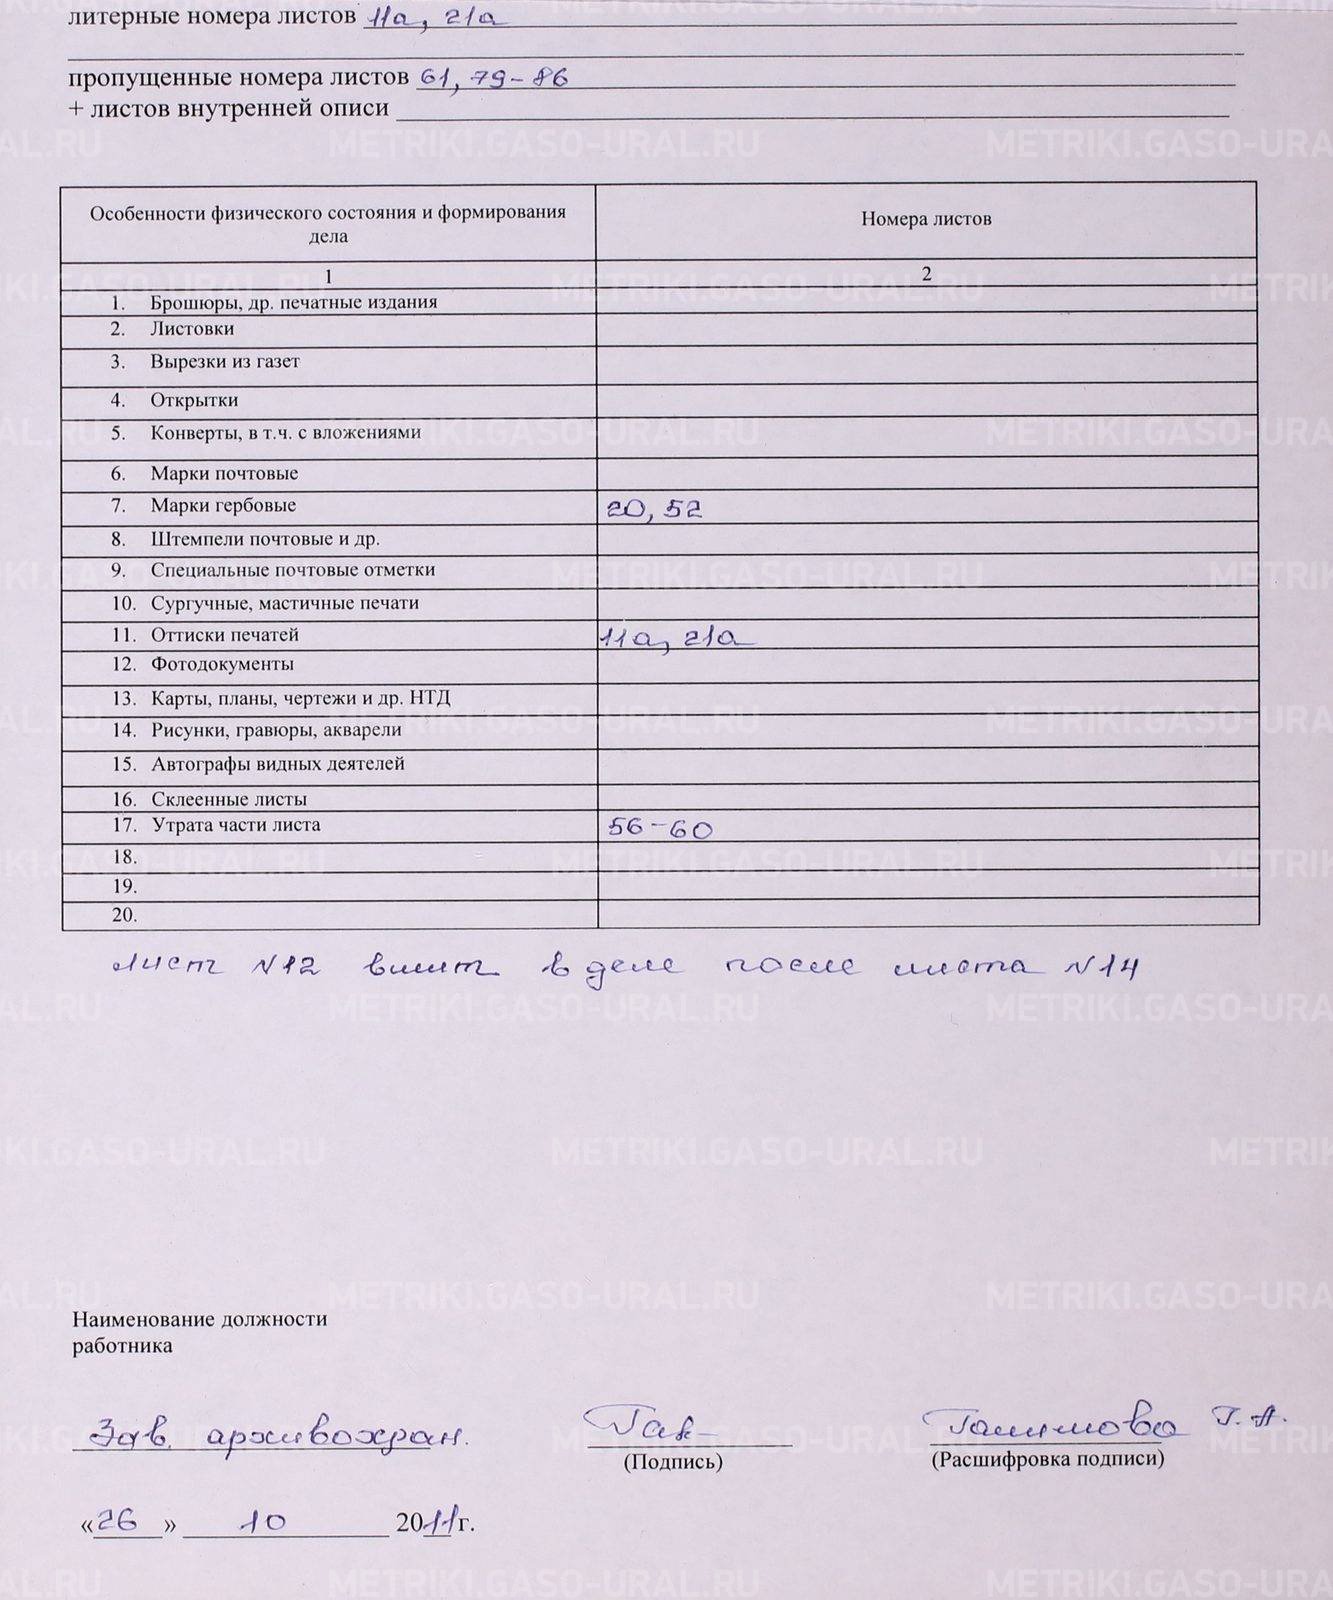 литерные номера листов 11а, 21а
пропущенные номера листов 61, 79-86
+ листов внутренней описи
Особенности физического состояния и формирования
дела
Номера листов
1
2
1. Брошюры, др. печатные издания
2. Листовки
3. Вырезки из газет
4. Открытки
5. Конверты, в т.ч. с вложениями
6. Марки почтовые
7. Марки гербовые 20, 52
8. Штемпели почтовые и др.
9. Специальные почтовые отметки
10. Сургучные, мастичные печати
11. Оттиски печатей 11а, 21а
12. Фотодокументы
13. Карты, планы, чертежи и др. НТД
14. Рисунки, гравюры, акварели
15. Автографы видных деятелей
16. Склеенные листы
17. Утрата части листа 56-60
18.
19.
20.
Лист №12 вшит в деле после листа №14
Наименование должности
работника
Зав. архивохран. Т. А.
(Подпись) (Расшифровка подписи)
«26» 10 2011 г.
METRIKI.GASO-URAL.RU